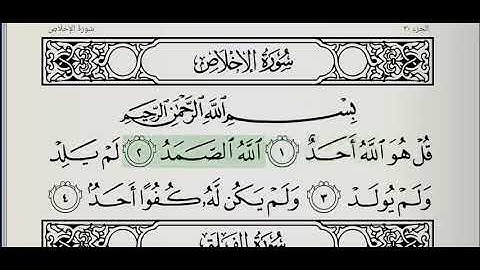 الجزء ٣٠ سورة الإخلاص
سُورَةُ الإِخْلَاصِ
بِسْمِ ٱللَّهِ ٱلرَّحْمَٰنِ ٱلرَّحِيمِ
قُلْ هُوَ ٱللَّهُ أَحَدٌ ١ ٱللَّهُ ٱلصَّمَدُ ٢ لَمْ يَلِدْ
وَلَمْ يُولَدْ ٣ وَلَمْ يَكُن لَّهُۥ كُفُوًا أَحَدٌۢ ٤
سُورَةُ الفَلَقِ